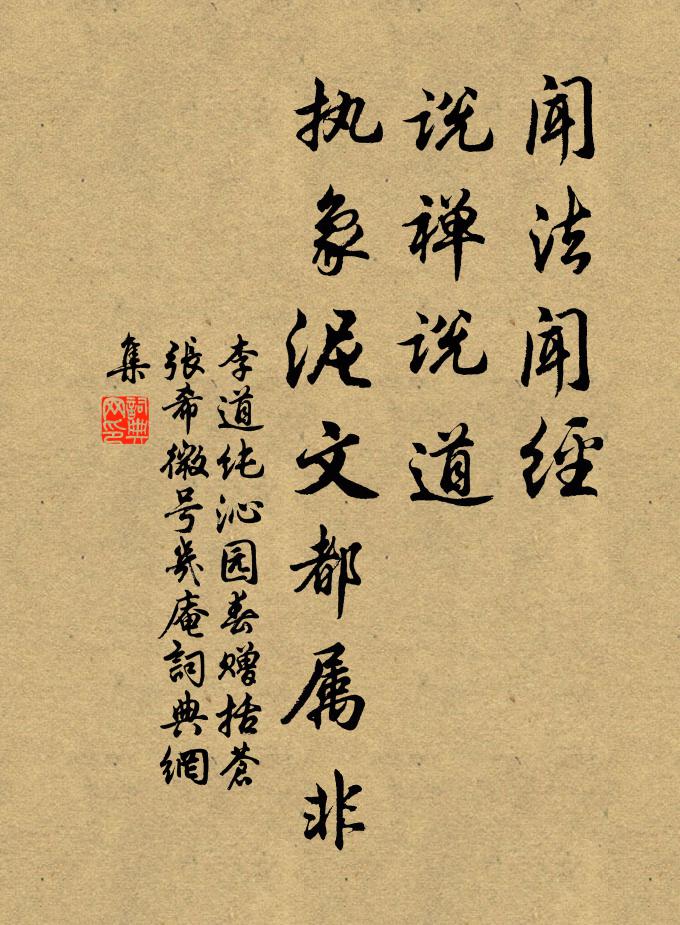 闻法闻经
说禅说道
执象泥文都属非
李道纯沁园春赠括苍
張希微号几庵詞典網
集
詞典网印